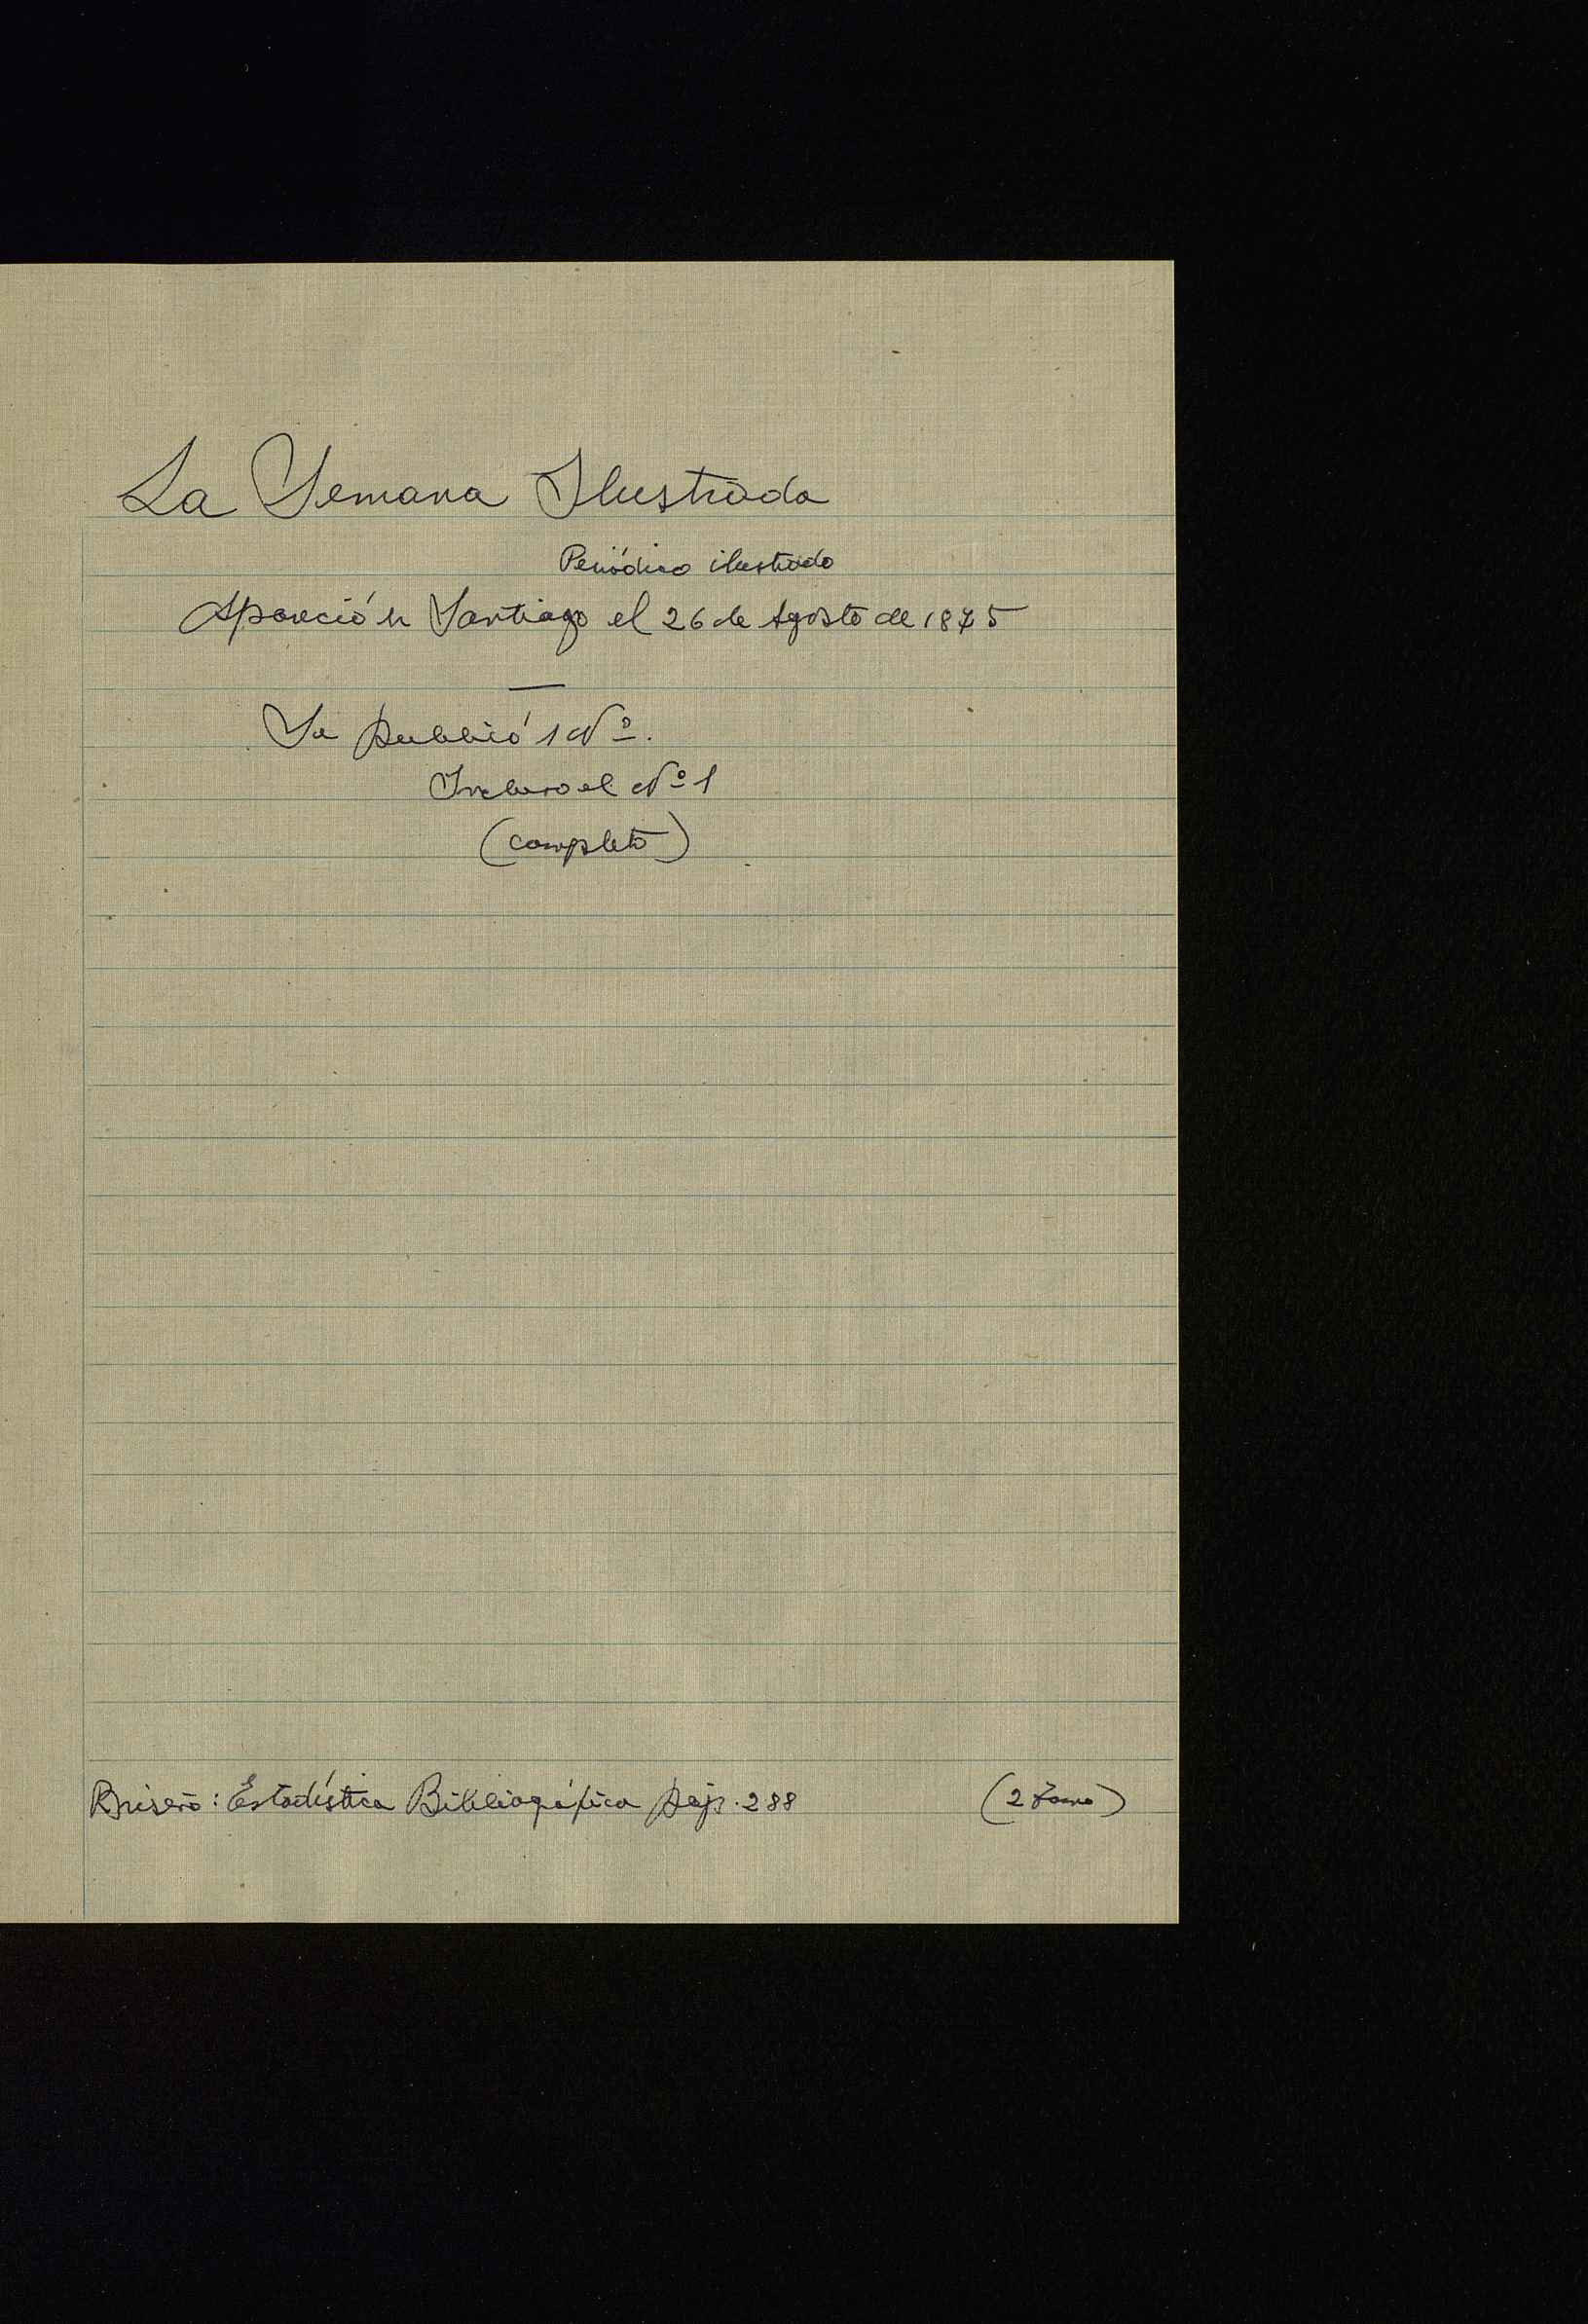 La Semana Ilustrada
Periódico ilustrado
Apareció en Santiago el 26 de Agosto de 1875
Se publicó 1 Nº.
Incluso el Nº 1
(completo)
Briseño: Estadística Bibliográfica páj. 288 (2 Tomo)